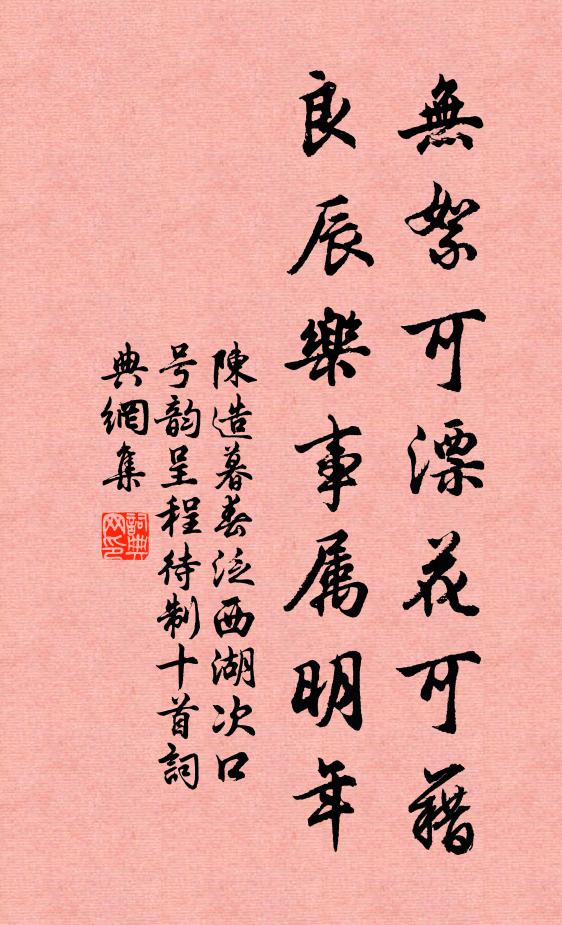 無絮可漂花可藉
良辰樂事属明年
陳造暮春泛西湖次口
号韵呈程待制十首詞
典網集
詞典网印